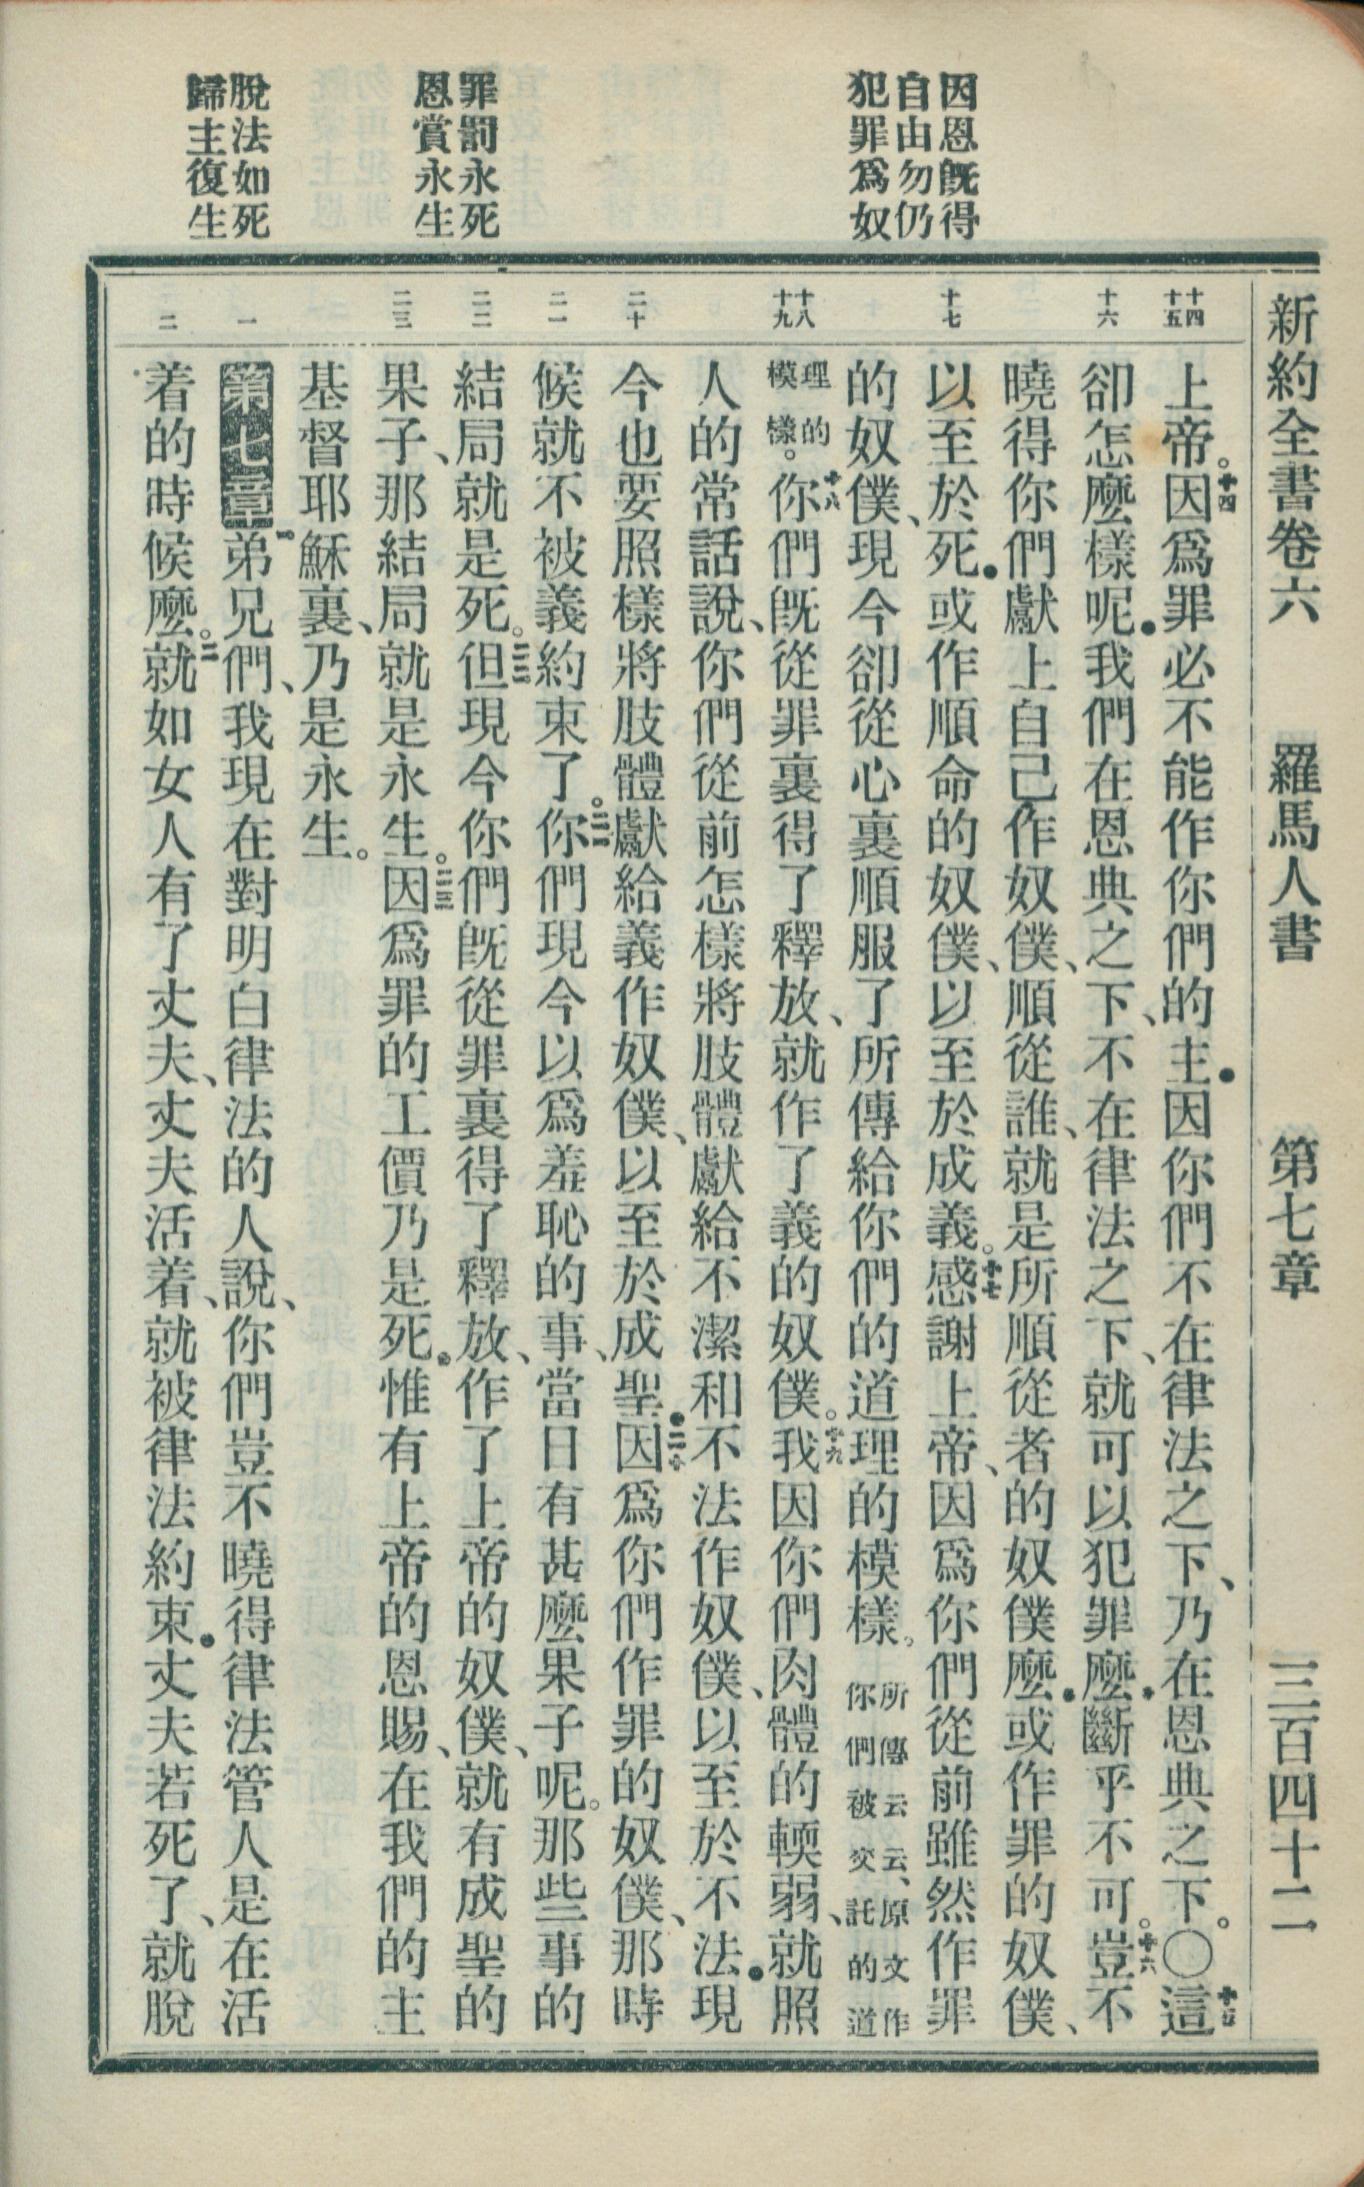 新約全書卷六 羅馬人書 第七章 三百四十二
因恩旣得
自由勿仍
犯罪爲奴
罪罰永死
恩賞永生
脫法如死
歸主復生
十四
十五
十六
十七
十八
十九
二十
二一
二二
二三
一
二
上帝。十四因爲罪必不能作你們的主．因你們不在律法之下、乃在恩典之下。〇十五這
卻怎麼樣呢．我們在恩典之下、不在律法之下、就可以犯罪麼．斷乎不可。十六豈不
曉得你們獻上自己作奴僕、順從誰、就是所順從者的奴僕麼．或作罪的奴僕、
以至於死．或作順命的奴僕、以至於成義。十七感謝上帝、因爲你們從前雖然作罪
的奴僕、現今卻從心裏順服了所傳給你們的道理的模樣。所傳云云、原文作你們被交託的道
理的模樣。十八你們旣從罪裏得了釋放、就作了義的奴僕。十九我因你們肉體的輭弱、就照
人的常話說、你們從前怎樣將肢體獻給不潔和不法作奴僕、以至於不法．現
今也要照樣將肢體獻給義作奴僕、以至於成聖．二十因爲你們作罪的奴僕、那時
候就不被義約束了。二一你們現今以爲羞恥的事、當日有甚麼果子呢。那些事的
結局就是死。二二但現今你們旣從罪裏得了釋放、作了上帝的奴僕、就有成聖的
果子、那結局就是永生。二三因爲罪的工價乃是死．惟有上帝的恩賜、在我們的主
基督耶穌裏、乃是永生。
第七章 一弟兄們、我現在對明白律法的人說、你們豈不曉得律法管人是在活
着的時候麼。二就如女人有了丈夫、丈夫活着、就被律法約束．丈夫若死了、就脫